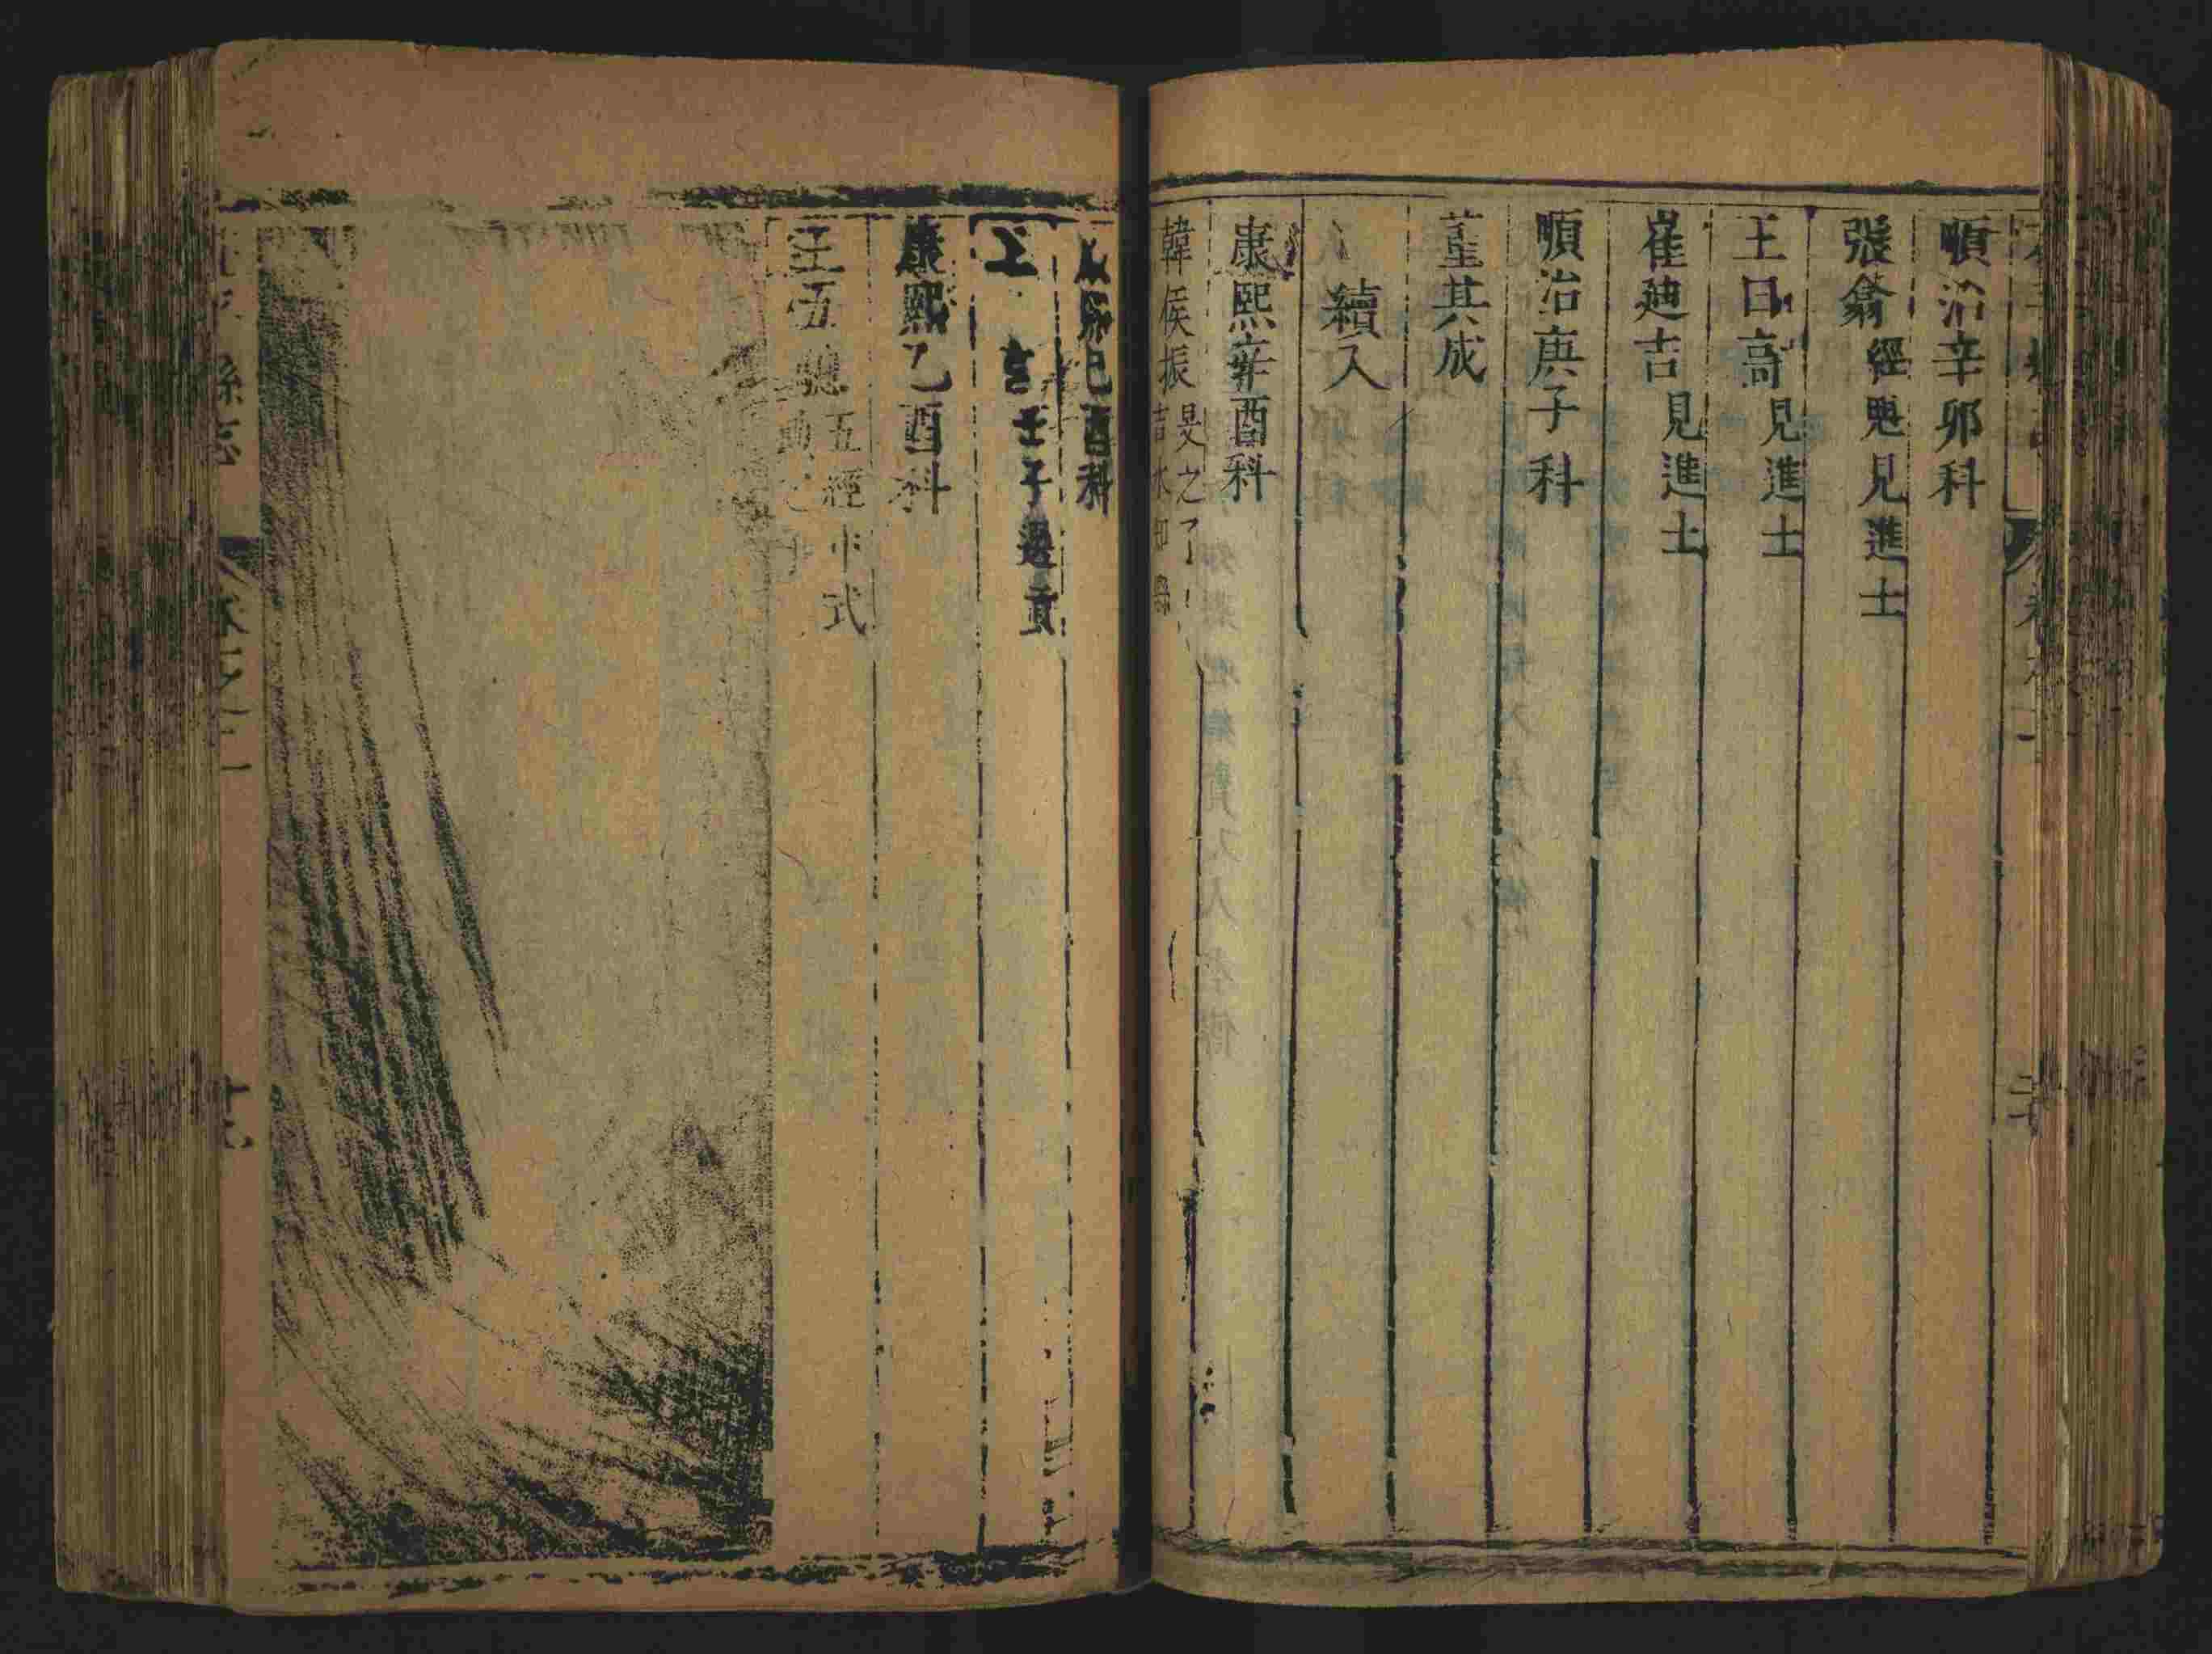 順治辛卯科
張翕 經魁見進士
王曰高 見進士
崔廸吉 見進士
順治庚子科
董其成
續入
康熙辛酉科
韓侯振 旻之子 吉水知縣
康熙己酉科
王 言 壬子選貢
康熙乙酉科
王五 五經中式
縣志